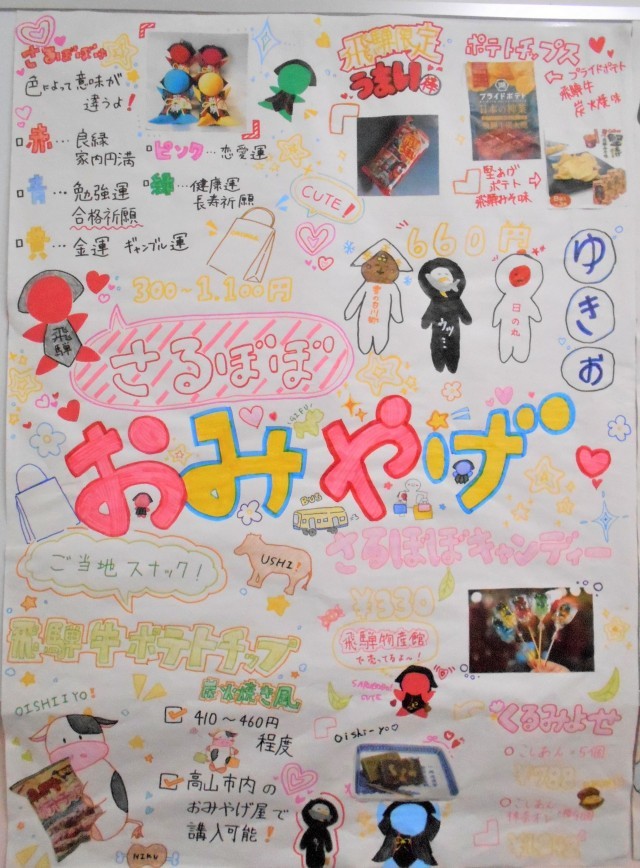 さるぼぼ
色によって意味が
違うよ!
赤…良縁
家内円満
青…勉強運
合格祈願
黄…金運 ギャンブル運
ピンク…恋愛運
緑…健康運
長寿祈願
CUTE!
飛騨限定
うまい棒
ポテトチップス
← プライドポテト
飛騨牛
炭火焼味
プライドポテト
堅あげ
ポテト
飛騨みそ味
660円
ウッ…
日の丸
ゆきお
300~1,100円
飛騨
さるぼぼ
おみやげ
GIFU
BUS
ご当地スナック!
USHI!
さるぼぼキャンディー
¥330
飛騨物産館
で売ってるよ~!
飛騨牛ポテトチップ
炭火焼き風
OISHIIYO!
410~460円
程度
高山市内の
おみやげ屋で
講入可能!
NIKU
SARUBOBO
CUTE
Oishi-yo♡
くるみよせ
こしあん×5個
¥788
こしあん